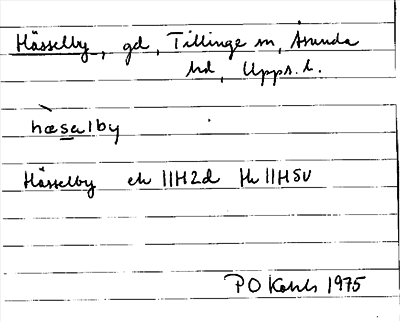 Hässelby, gd, Tillinge sn, Åsunda
hd, Upps. l.
hæsalby
Hässelby ek 11H2d Hk 11H5v
P O 1975